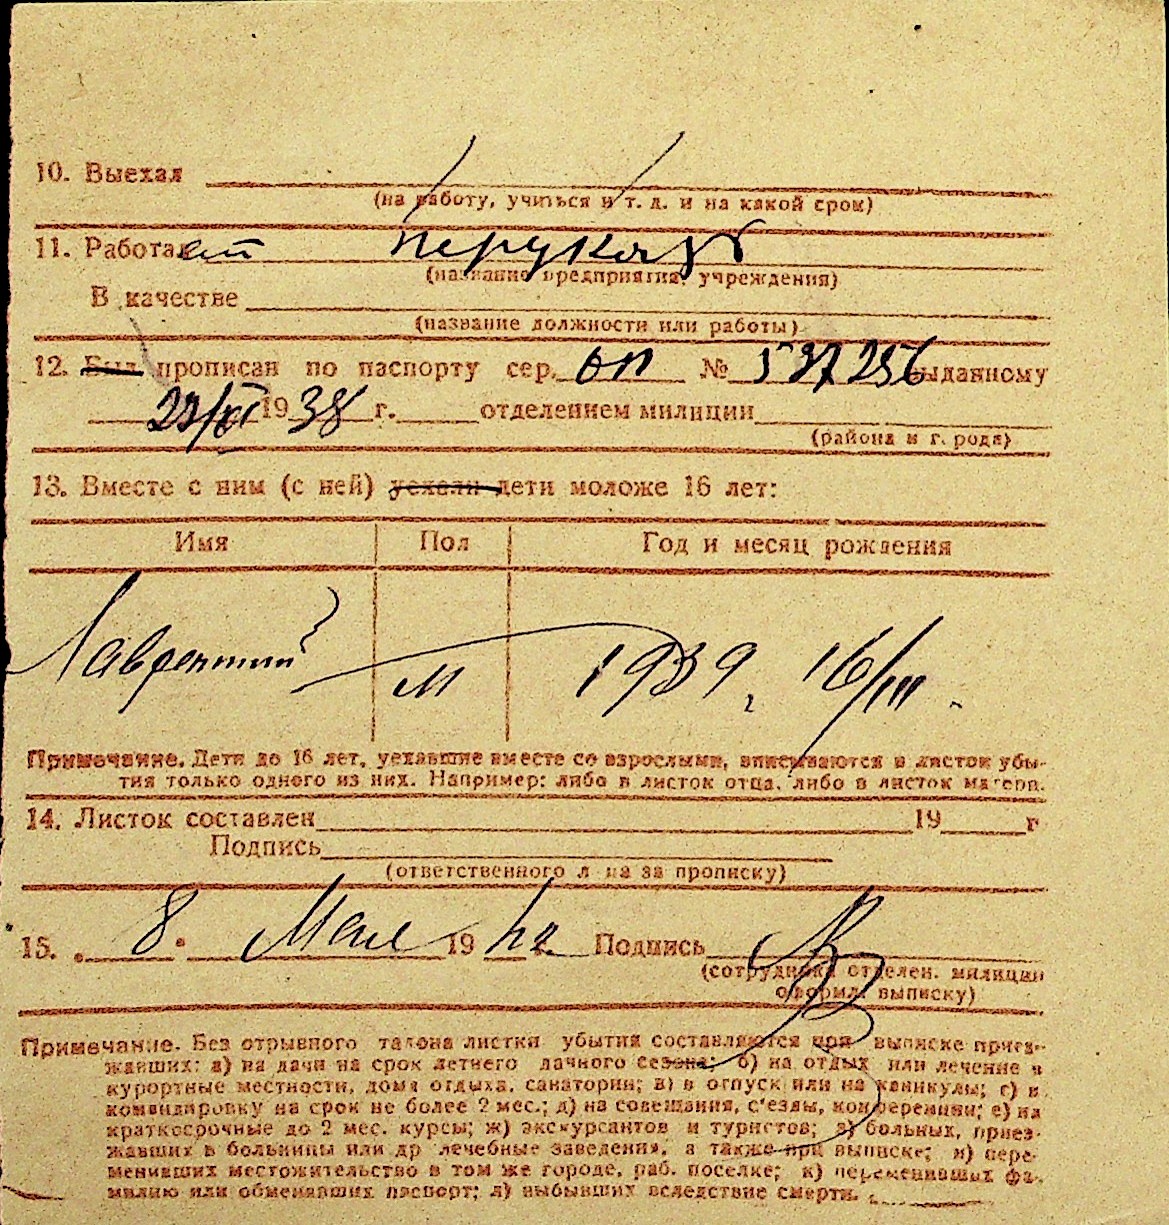 10. Выехал
(на работу, учиться и т. д. и на какой срок)
11. Работает
(название предприятия, учреждения)
В качестве
(название должности или работы)
12. Был прописан по паспорту сер. оп № 597256 выданному
1938 г. отделением милиции
(района и г. рода)
13. Вместе с ним (с ней) уехали дети моложе 16 лет:
Имя Пол Год и месяц рождения
Лаврентий м 1939 г. 16/III.
Примечание. Дети до 16 лет, уехавшие вместе со взрослыми, вписываются в листок убы-
тия только одного из них. Например: либо в листок отца, либо в листок матери.
14. Листок составлен 19 г
Подпись
(ответственного л на за прописку)
15. 8. Мая 19 г. Подпись
(сотрудника отделен. милиции
оформл. выписку)
Примечание. Без отрывного талона листки убытия составляются при выписке приез-
жавших: а) на дачи на срок летнего дачного сезона; б) на отдых или лечение в
курортные местности, дома отдыха, санатории; в) в отпуск или на каникулы; г) в
командировку на срок не более 2 мес.; д) на совещания, с'езды, конференции; е) на
краткосрочные до 2 мес. курсы; ж) экскурсантов и туристов; з) больных, приез-
жавших в больницы или др лечебные заведения, а также при выписке; и) пере-
менивших местожительство в том же городе, раб. поселке; к) переменивших фа-
милию или обменявших паспорт; л) выбывших вследствие смерти.